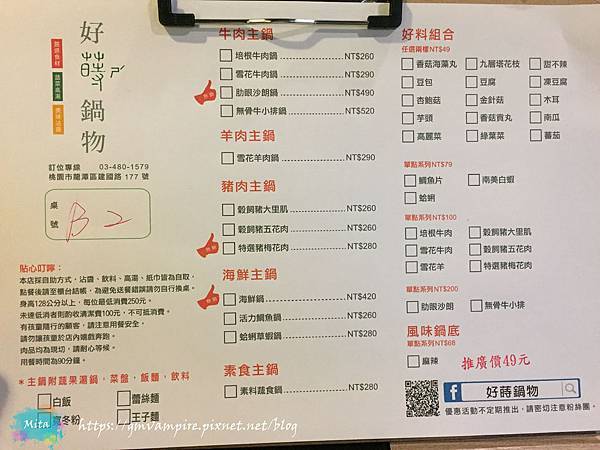 嚴選食材
蔬菜高湯
美味沾醬
好蒔鍋物
ㄕˊ
訂位專線 03-480-1579
桃園市龍潭區建國路 177 號
桌號
B2
貼心叮嚀：
本店採自助方式，沾醬、飲料、高湯、紙巾皆為自取，
點餐後請至櫃台結帳，為避免送餐錯誤請勿自行換桌。
身高128公分以上，每位最低消費250元。
未達低消者則酌收清潔費100元，不可抵消費。
有孩童隨行的顧客，請注意用餐安全，
請勿讓孩童於店內嬉戲奔跑。
肉品均為現切，請耐心等候。
用餐時間為90分鐘。
＊主鍋附蔬果湯鍋，菜盤，飯麵，飲料
白飯
蕾絲麵
冬粉
王子麵
牛肉主鍋
培根牛肉鍋 NT$260
雪花牛肉鍋 NT$290
肋眼沙朗鍋 NT$490
無骨牛小排鍋 NT$520
羊肉主鍋
雪花羊肉鍋 NT$290
豬肉主鍋
穀飼豬大里肌 NT$260
穀飼豬五花肉 NT$260
特選豬梅花肉 NT$280
海鮮主鍋
海鮮鍋 NT$420
活力鯛魚鍋 NT$260
蛤蜊草蝦鍋 NT$280
素食主鍋
素料蔬食鍋 NT$280
好料組合
任選兩樣NT$49
香菇海藻丸 九層塔花枝 甜不辣
豆包 豆腐 凍豆腐
杏鮑菇 金針菇 木耳
芋頭 香菇貢丸 南瓜
高麗菜 綠葉菜 蕃茄
單點系列NT$79
鯛魚片 南美白蝦
蛤蜊
單點系列NT$100
培根牛肉 穀飼豬大里肌
雪花牛肉 穀飼豬五花肉
雪花羊 特選豬梅花肉
單點系列NT$200
肋眼沙朗 無骨牛小排
風味鍋底
單點系列NT$68
麻辣
推廣價49元
f 好蒔鍋物
優惠活動不定期推出，請密切注意粉絲團。
Mita
https://gmvampire.pixnet.net/blog